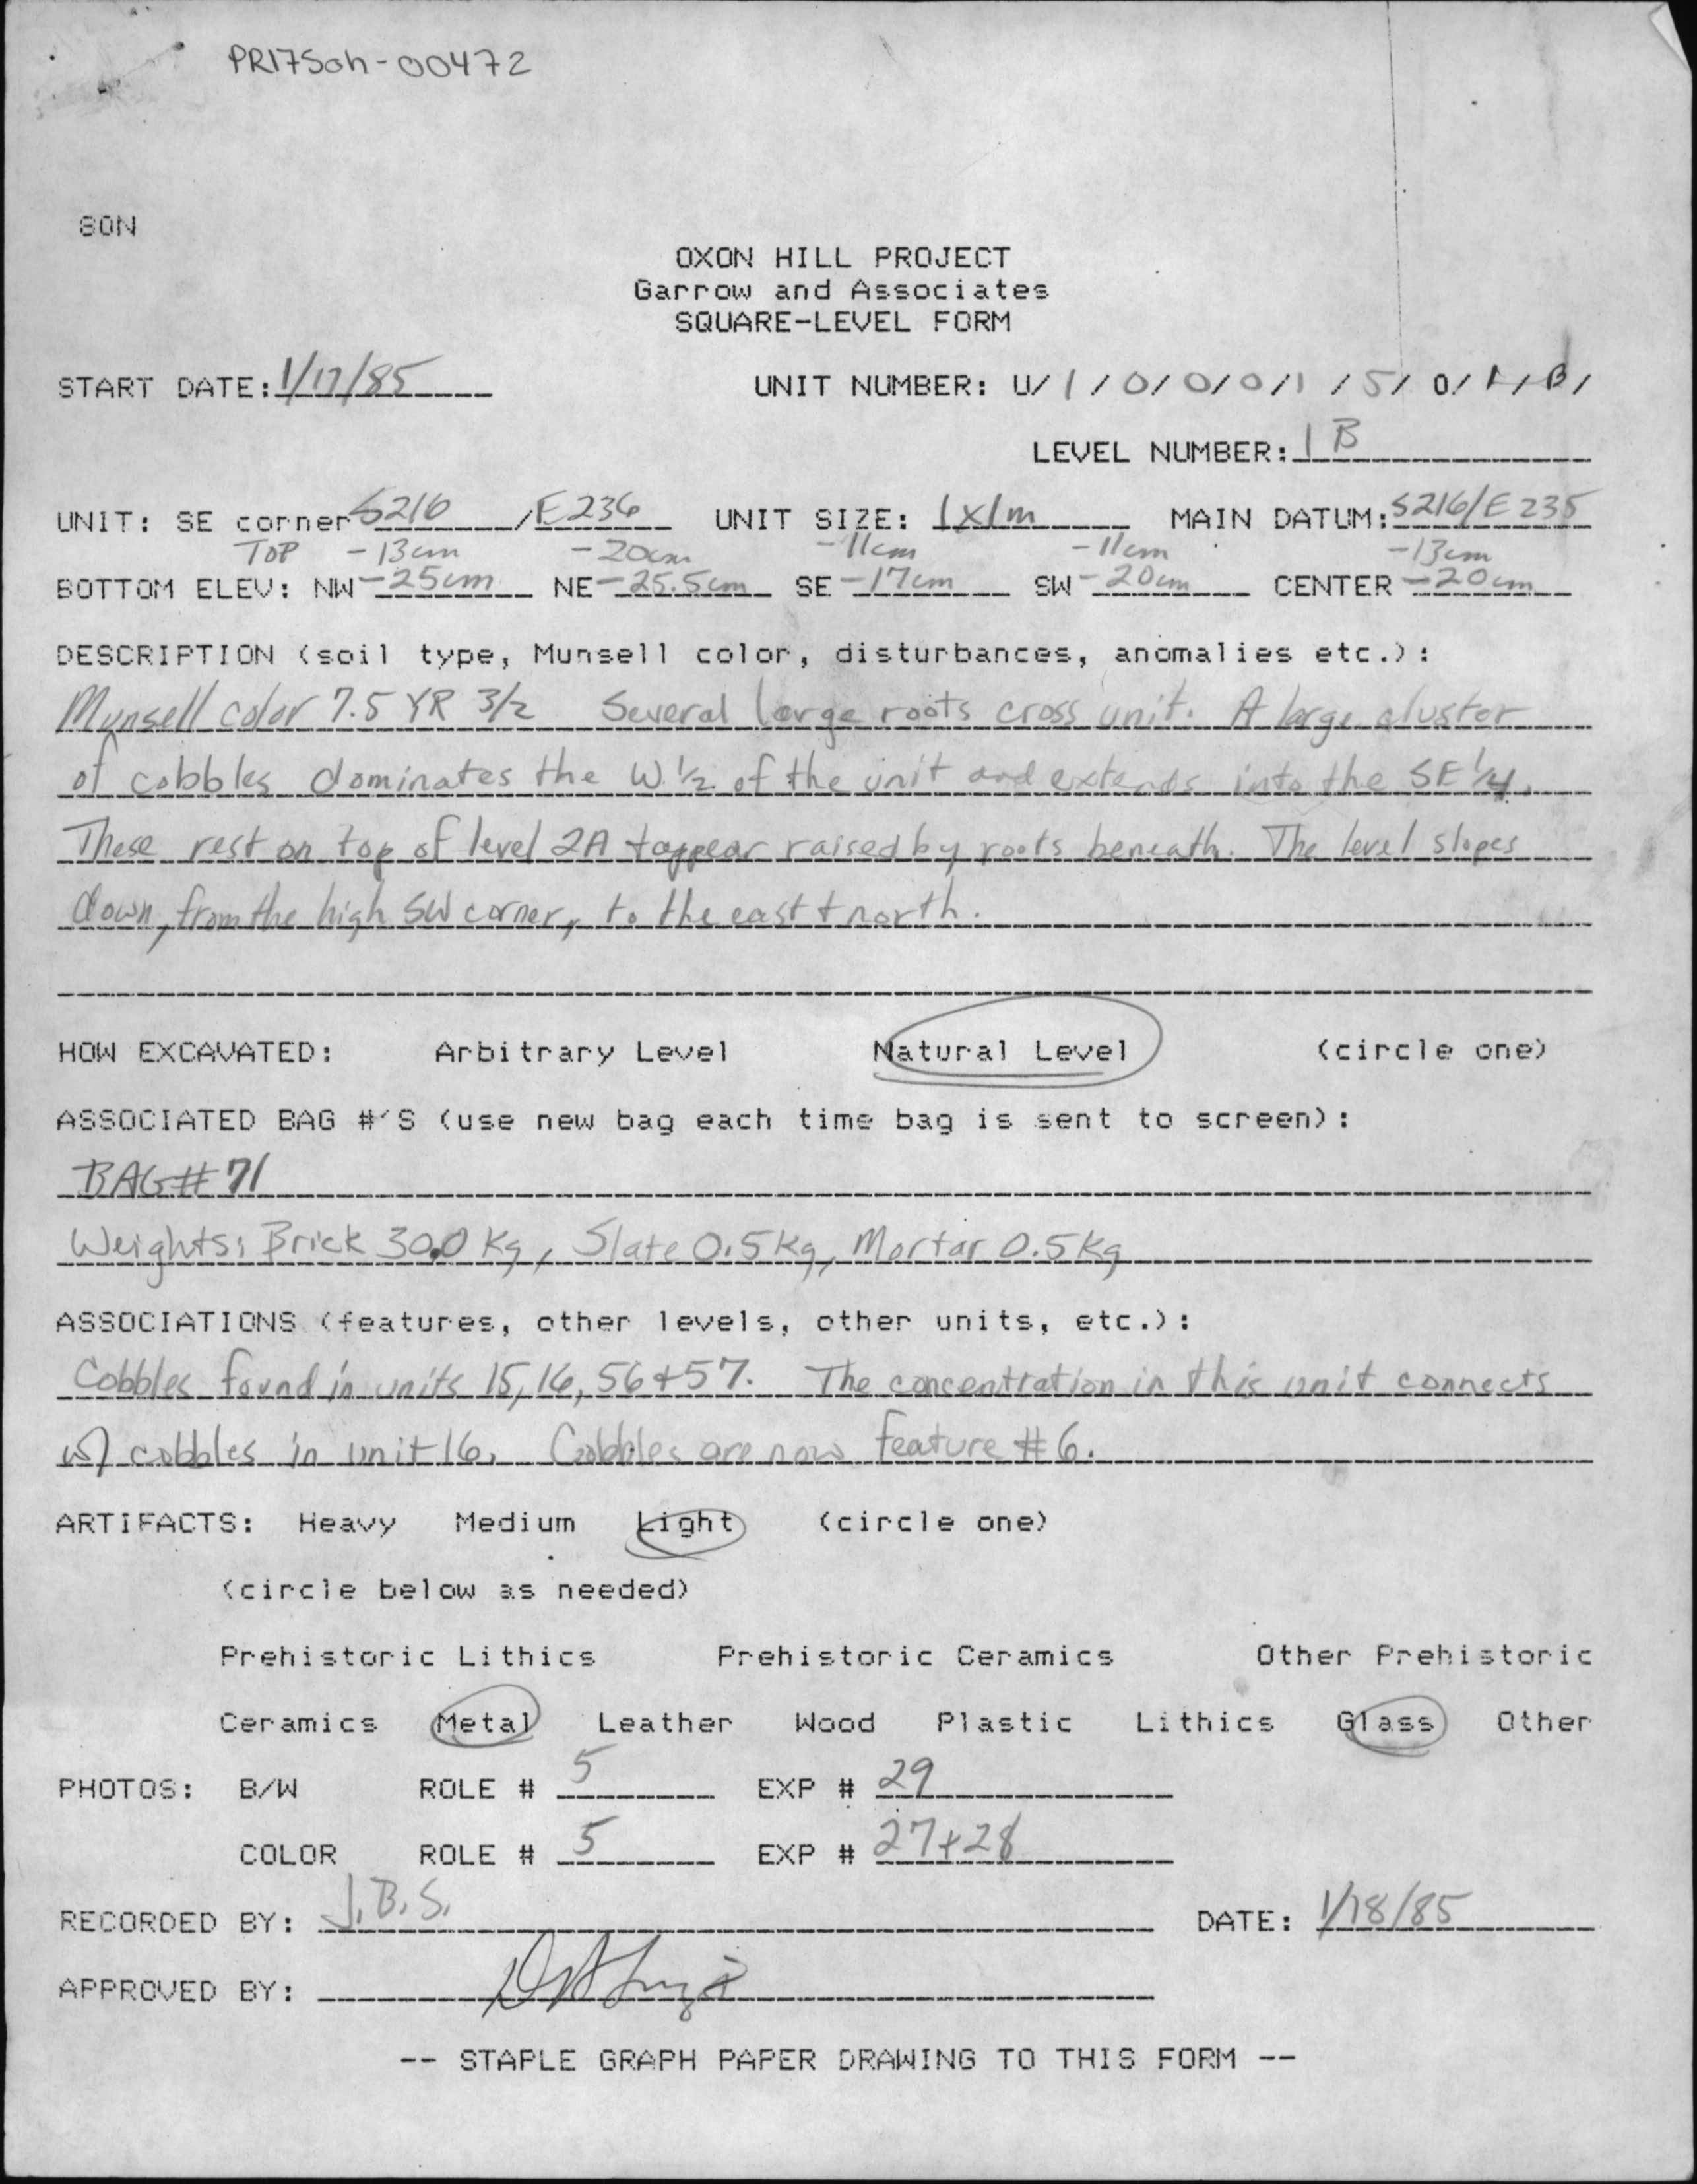 PR175oh-00472
SON
OXON HILL PROJECT
Garrow and Associates
SQUARE-LEVEL FORM
START DATE: 1/17/85 UNIT NUMBER: U/ 1 / 0/ 0/ 0/1 / 5/ 0/ 1/ B/
LEVEL NUMBER: 1B
UNIT: SE corner S216 /E236 UNIT SIZE: 1x1m MAIN DATUM: S216/E235
TOP -13cm -20cm -11cm -11cm -13cm
BOTTOM ELEV: NW -25cm NE -25.5cm SE -17cm SW -20cm CENTER -20cm
DESCRIPTION (soil type, Munsell color, disturbances, anomalies etc.):
Munsell color 7.5 YR 3/2 Several large roots cross unit. A large cluster
of cobbles dominates the W 1/2 of the unit and extends into the SE 1/4.
These rest on top of level 2A + appear raised by roots beneath. The level slopes
down, from the high SW corner, to the east + north.
HOW EXCAVATED: Arbitrary Level Natural Level (circle one)
ASSOCIATED BAG #'S (use new bag each time bag is sent to screen):
BAG# 71
Weights: Brick 30.0 Kg, Slate 0.5 Kg, Mortar 0.5 Kg
ASSOCIATIONS (features, other levels, other units, etc.):
Cobbles found in units 15, 16, 56 + 57. The concentration in this unit connects
w/ cobbles in unit 16. Cobbles are now Feature #6.
ARTIFACTS: Heavy Medium Light (circle one)
(circle below as needed)
Prehistoric Lithics Prehistoric Ceramics Other Prehistoric
Ceramics Metal Leather Wood Plastic Lithics Glass Other
PHOTOS: B/W ROLE # 5 EXP # 29
COLOR ROLE # 5 EXP # 27+28
RECORDED BY: J.B.S. DATE: 1/18/85
APPROVED BY:
-- STAPLE GRAPH PAPER DRAWING TO THIS FORM --